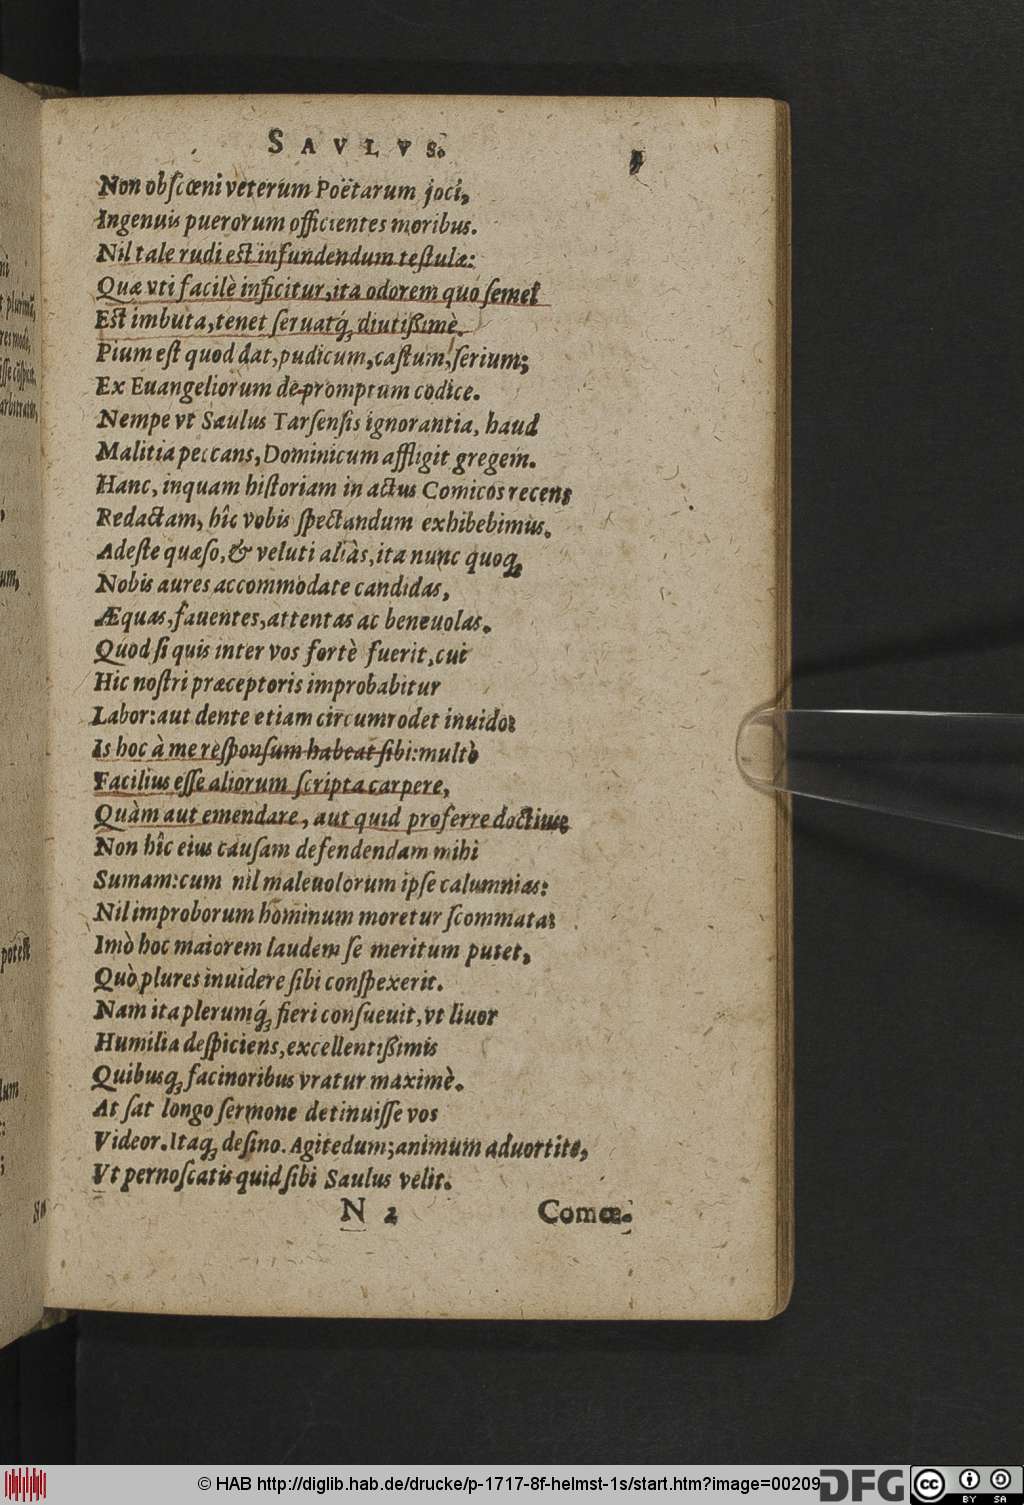 SAVLVS.
Non obſcœni veterum Poëtarum joci,
Ingenuis puerorum officientes moribus.
Nil tale rudi est infundendum teſtulæ:
Quæ vti facilè inficitur, ita odorem quo ſemel
Est imbuta, tenet ſeruatq́; diutißimè.
Pium eſt quod dat, pudicum, caſtum, ſerium;
Ex Euangeliorum de-promptum codice.
Nempe vt Saulus Tarſenſis ignorantia, haud
Malitia peccans, Dominicum affligit gregem.
Hanc, inquam hiſtoriam in actus Comicos recens
Redactam, hîc vobis ſpectandum exhibebimus.
Adeſte quæſo, & veluti aliàs, ita nunc quoq;
Nobis aures accommodate candidas,
Æquas, fauentes, attentas ac beneuolas.
Quod ſi quis inter vos fortè fuerit, cui
Hic noſtri præceptoris improbabitur
Labor: aut dente etiam circumrodet inuido:
Is hoc à me reſponſum habeat ſibi: multò
Facilius eſſe aliorum ſcripta carpere,
Quàm aut emendare, aut quid proferre doctius
Non hîc eius cauſam defendendam mihi
Sumam: cum nil maleuolorum ipſe calumnias:
Nil improborum hominum moretur ſcommata:
Imò hoc maiorem laudem ſe meritum putet,
Quò plures inuidere ſibi conſpexerit.
Nam ita plerumq́; fieri conſueuit, vt liuor
Humilia deſpiciens, excellentißimis
Quibusq; facinoribus vratur maximè.
At ſat longo ſermone detinuiſſe vos
Videor. Itaq; deſino. Agitedum; animum aduortite,
Vt pernoſcatis quid ſibi Saulus velit.
N 2 Comœ.
© HAB http://diglib.hab.de/drucke/p-1717-8f-helmst-1s/start.htm?image=00209
DFG
cc BY SA